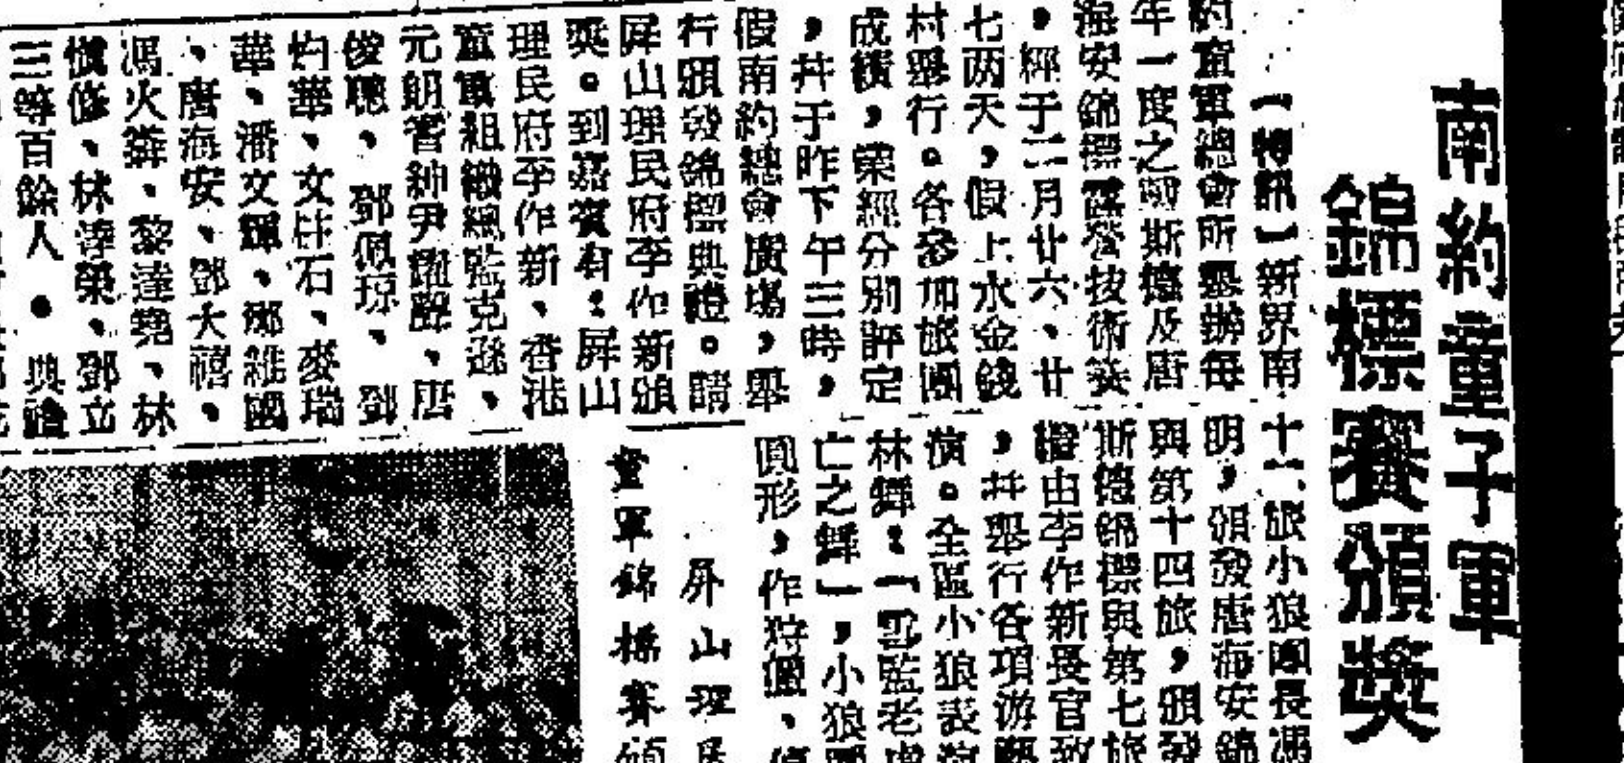 南約童子軍
錦標賽頒獎
【特訊】新界南
約童軍總會所舉辦每
年一度之嘅斯德及唐
海安錦標露營技術獎
，經于二月廿六、廿
七两天，假上水金錢
村舉行。各參加旅團
成績，業經分別評定
，并于昨下午三時，
假南約總會廣場，舉
行頒發錦標典禮。請
屏山理民府李作新頒
獎。到嘉賓有：屏山
理民府李作新、香港
童軍組織總監克遜、
元朗耆紳尹耀聲、唐
俊聰、鄧佩琼、鄧
灼華、文壮石、麥瑞
華、潘文輝、鄉維國
、唐海安、鄧大禧、
馮火森、黎達堯、林
懷修、林濤榮、鄧立
三等百餘人●典禮
十一旅小狼團長馮
明，頒發唐海安錦
與第十四旅，頒發
斯德錦標與第七旅
禮由李作新長官致
，并舉行各項游藝
演。全區小狼表演
林舞：「雲監老虎
亡之舞」，小狼
圓形，作狩獵、
屏山理民
童軍錦標賽頒